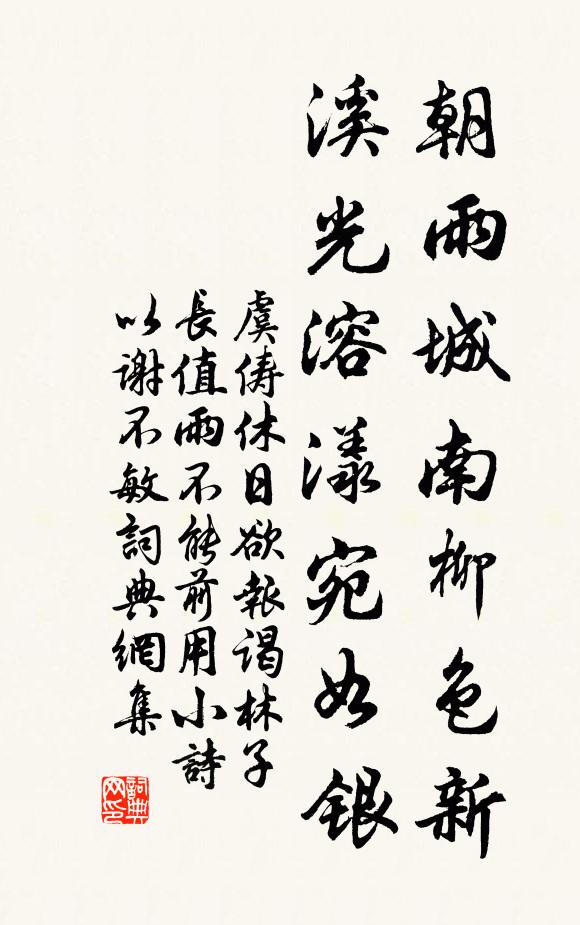 朝雨城南柳色新
溪光溶漾宛如銀
虞儔休日欲報謁林子
長值雨不能前用小詩
以謝不敏詞典網集
詞典网印